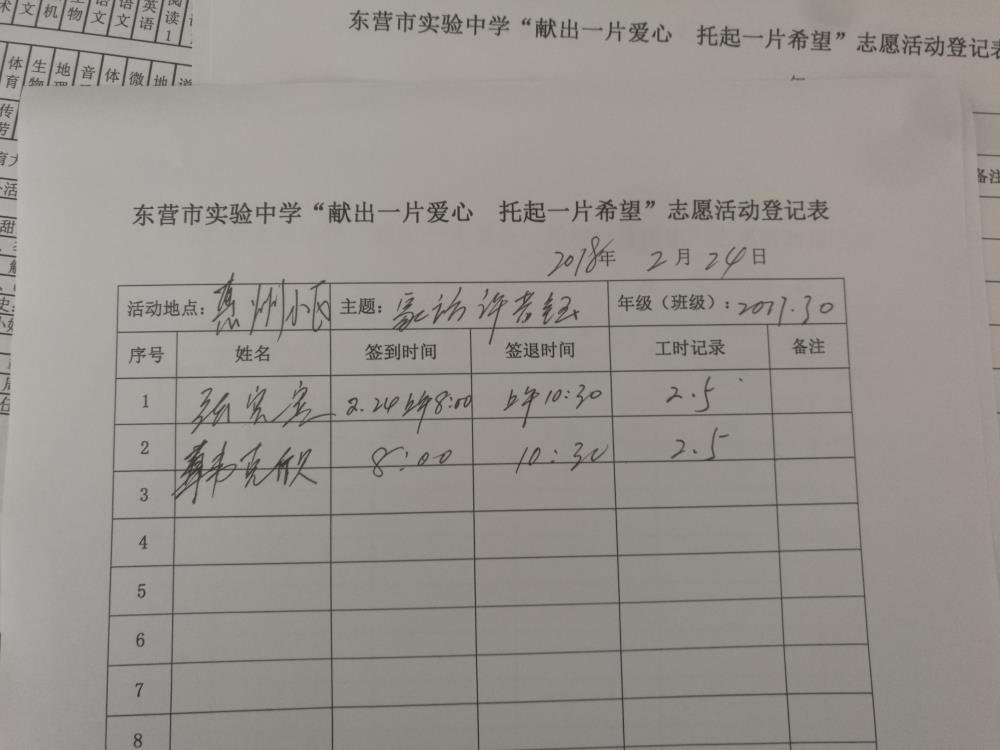 术 文 机 生物 语文 语文 英语 阅读1
体育 生物 地理 音 体 微 地
东营市实验中学“献出一片爱心 托起一片希望”志愿活动登记表
年
备注
东营市实验中学“献出一片爱心 托起一片希望”志愿活动登记表
2018年 2月24日
活动地点：惠州小区 主题：家访许 钰 年级（班级）：2017.30
序号 姓名 签到时间 签退时间 工时记录 备注
1 张 宝 2.24上午8:00 上午10:30 2.5
2 韩克欣 8:00 10:30 2.5
3
4
5
6
7
8